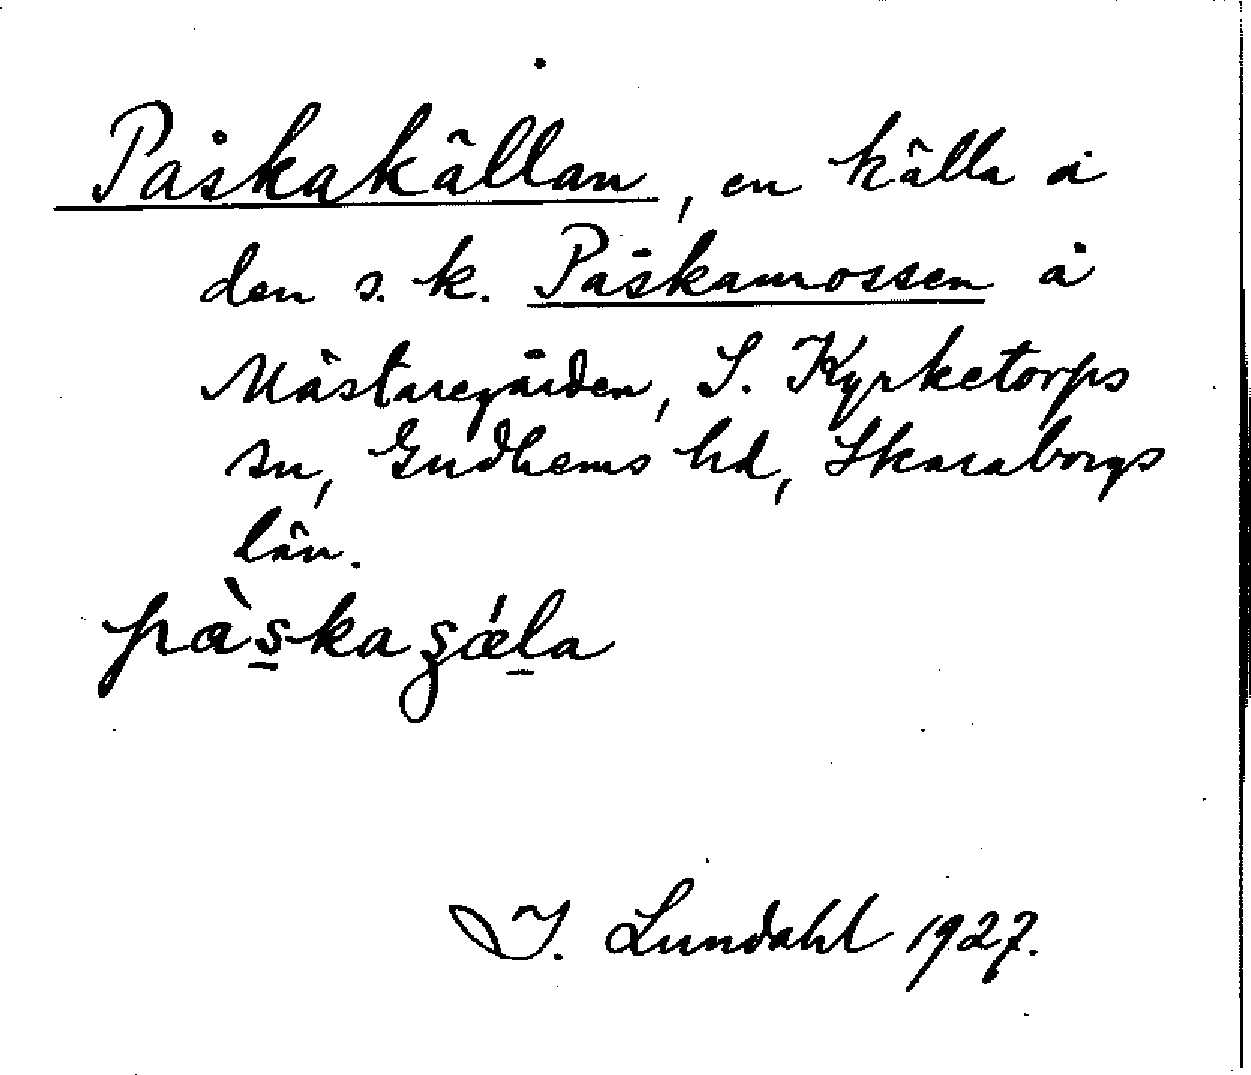 Påskakällan, en källa å
den s. k. Påskamossen å
Mästaregården, S. Kyrketorps
sn, Gudhems hd, Skaraborgs
län.
I. Lundahl 1927.